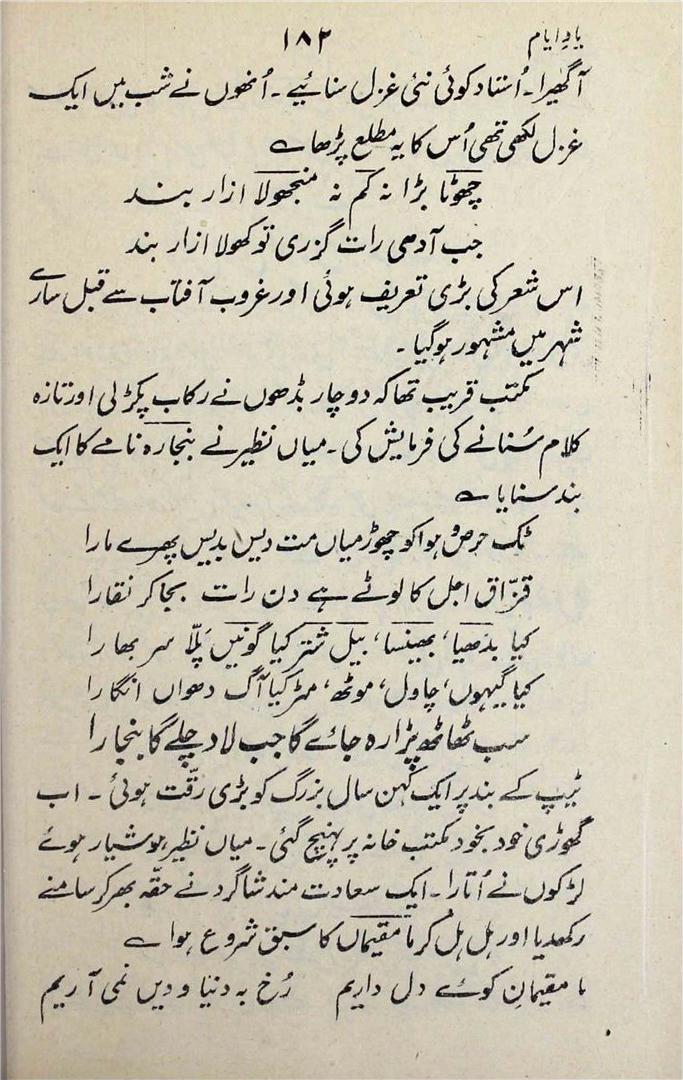 یادِ ایام
۱۸۲
آگھیرا۔ اُستاد کوئی نئی غزل سنائیے ۔ اُنھوں نے شب میں ایک
غزل لکھی تھی اُس کا یہ مطلع پڑھا ؎
چھوٹا بڑا نہ کم نہ منجھولا ازار بند
جب آدھی رات گزری تو کھولا ازار بند
اس شعر کی بڑی تعریف ہوئی اور غروب آفتاب سے قبل سارے
شہر میں مشہور ہوگیا ۔
مکتب قریب تھا کہ دو چار بڈھوں نے رکاب پکڑ لی اور تازہ
کلام سُنانے کی فرمایش کی ۔ میاں نظیر نے بنجارہ نامے کا ایک
بند سنایا ؎
ٹک حرص و ہوا کو چھوڑ میاں مت دیس بدیس پھرے مارا
قزّاق اجل کا لوٹے ہے دن رات بجا کر نقارا
کیا بدھیا، بھینسا، بیل شتر کیا گونیں پلّا سر بھارا
کیا گیہوں، چاول، موٹھ، مٹر کیا آگ دھواں انگارا
سب ٹھاٹھ پڑا رہ جائے گا جب لاد چلے گا بنجارا
ٹیپ کے بند پر ایک کہن سال بزرگ کو بڑی رقّت ہوئی ۔ اب
گھوڑی خود بخود مکتب خانہ پر پہنچ گئی ۔ میاں نظیر ہوشیار ہوئے
لڑکوں نے اُتارا ۔ ایک سعادت مند شاگرد نے حقّہ بھر کر سامنے
رکھدیا اور ہل ہل کر ما مقیماں کا سبق شروع ہوا ؎
ما مقیمانِ کوئے دل داریم رُخ بہ دنیا و دیں نمی آریم